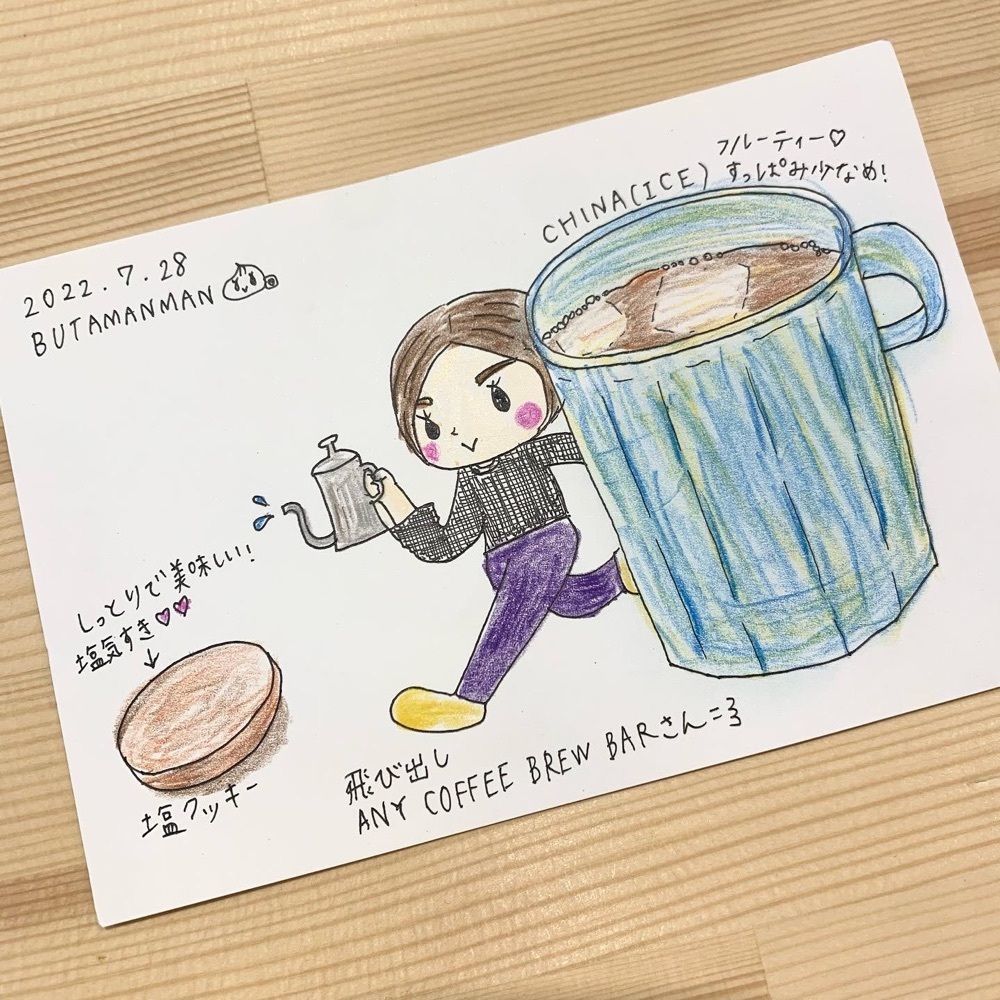 2022.7.28
BUTAMANMAN
CHINA(ICE)
フルーティー♡
すっぱみ少なめ!
しっとりで美味しい!
塩気すき♡♡
↓
塩クッキー
飛び出し
ANY COFFEE BREW BARさん